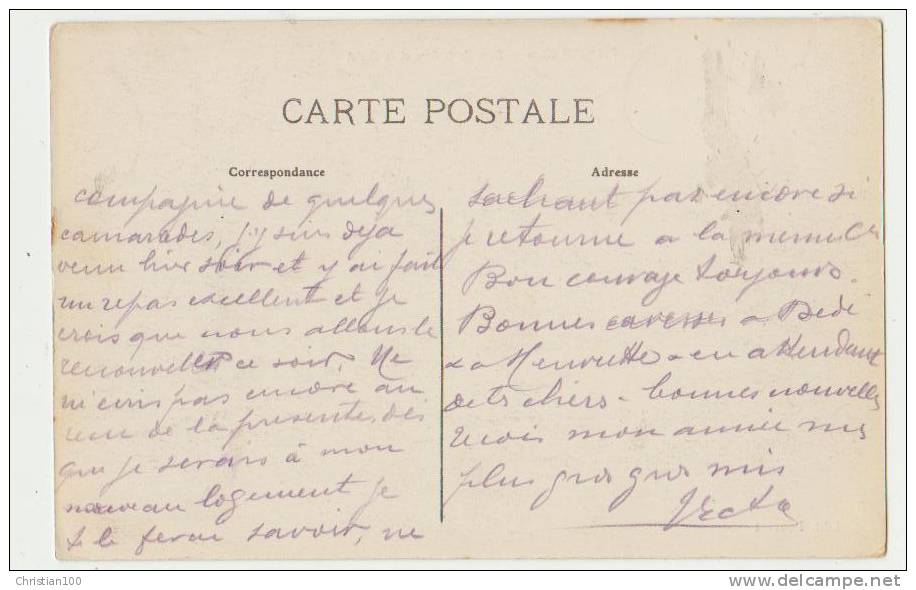 CARTE POSTALE
Correspondance
compagnie de quelques
camarades, j'y suis deja
venu hier soir et y ai fait
un repas excellent et je
crois que nous allons le
renouveller ce soir. Ne
m'ecris pas encore au
de la presente, des
que je serais à mon
nouveau logement je
te le ferai savoir, ne
Adresse
sachant pas encore si
je retourne a la meme Cie
Bon courage toujours.
Bonnes caresses a Bédé
& a Henriette & en attendant
de tes chers bonnes nouvelles
recois mon aimée mes
plus gros gros mis
Christian100
www.delcampe.net